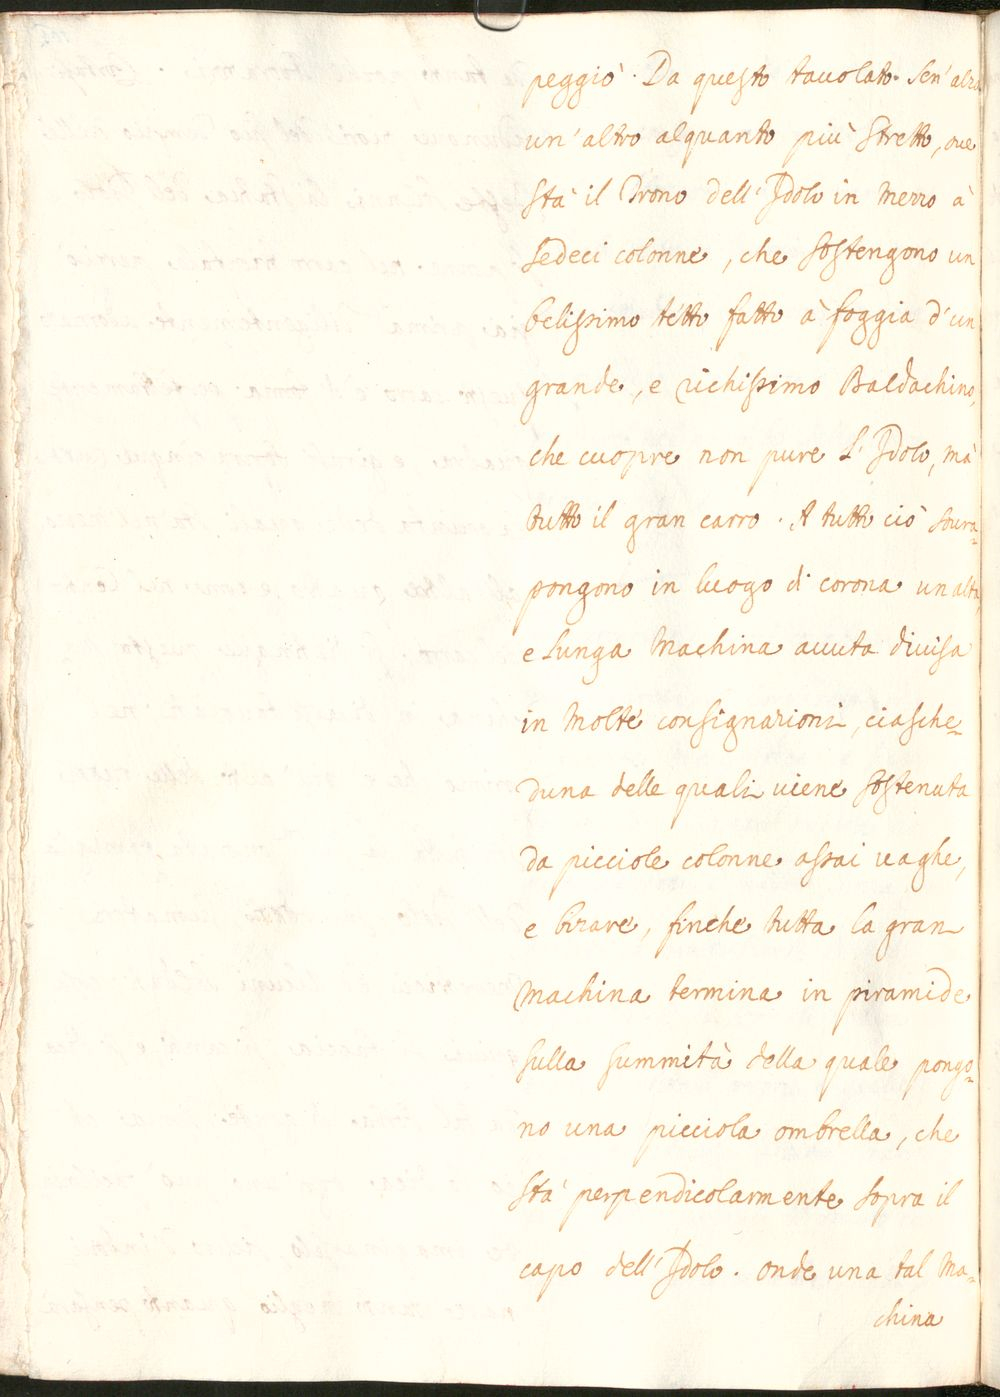 peggiò. Da questo tauolato sen'alza
un'altro alquanto più stretto, oue
stà il Trono dell'Idolo in mezzo à
sedeci colonne, che sostengono un
belissimo tetto fatto à foggia d'un
grande, e richissimo Baldachino,
che cuopre non pure l'Idolo, mà
tutto il gran carro. A tutto ciò soura-
pongono in luogo di corona un alta,
e lunga machina acuta diuisa
in molte consignazioni, ciasche-
duna delle quali uiene sostenuta
da picciole colonne assai uaghe,
e bizare, finche tutta la gran
machina termina in piramide
sulla summità della quale pongo-
no una picciola ombrella, che
stà perpendicolarmente sopra il
capo dell'Idolo. onde una tal ma-
china